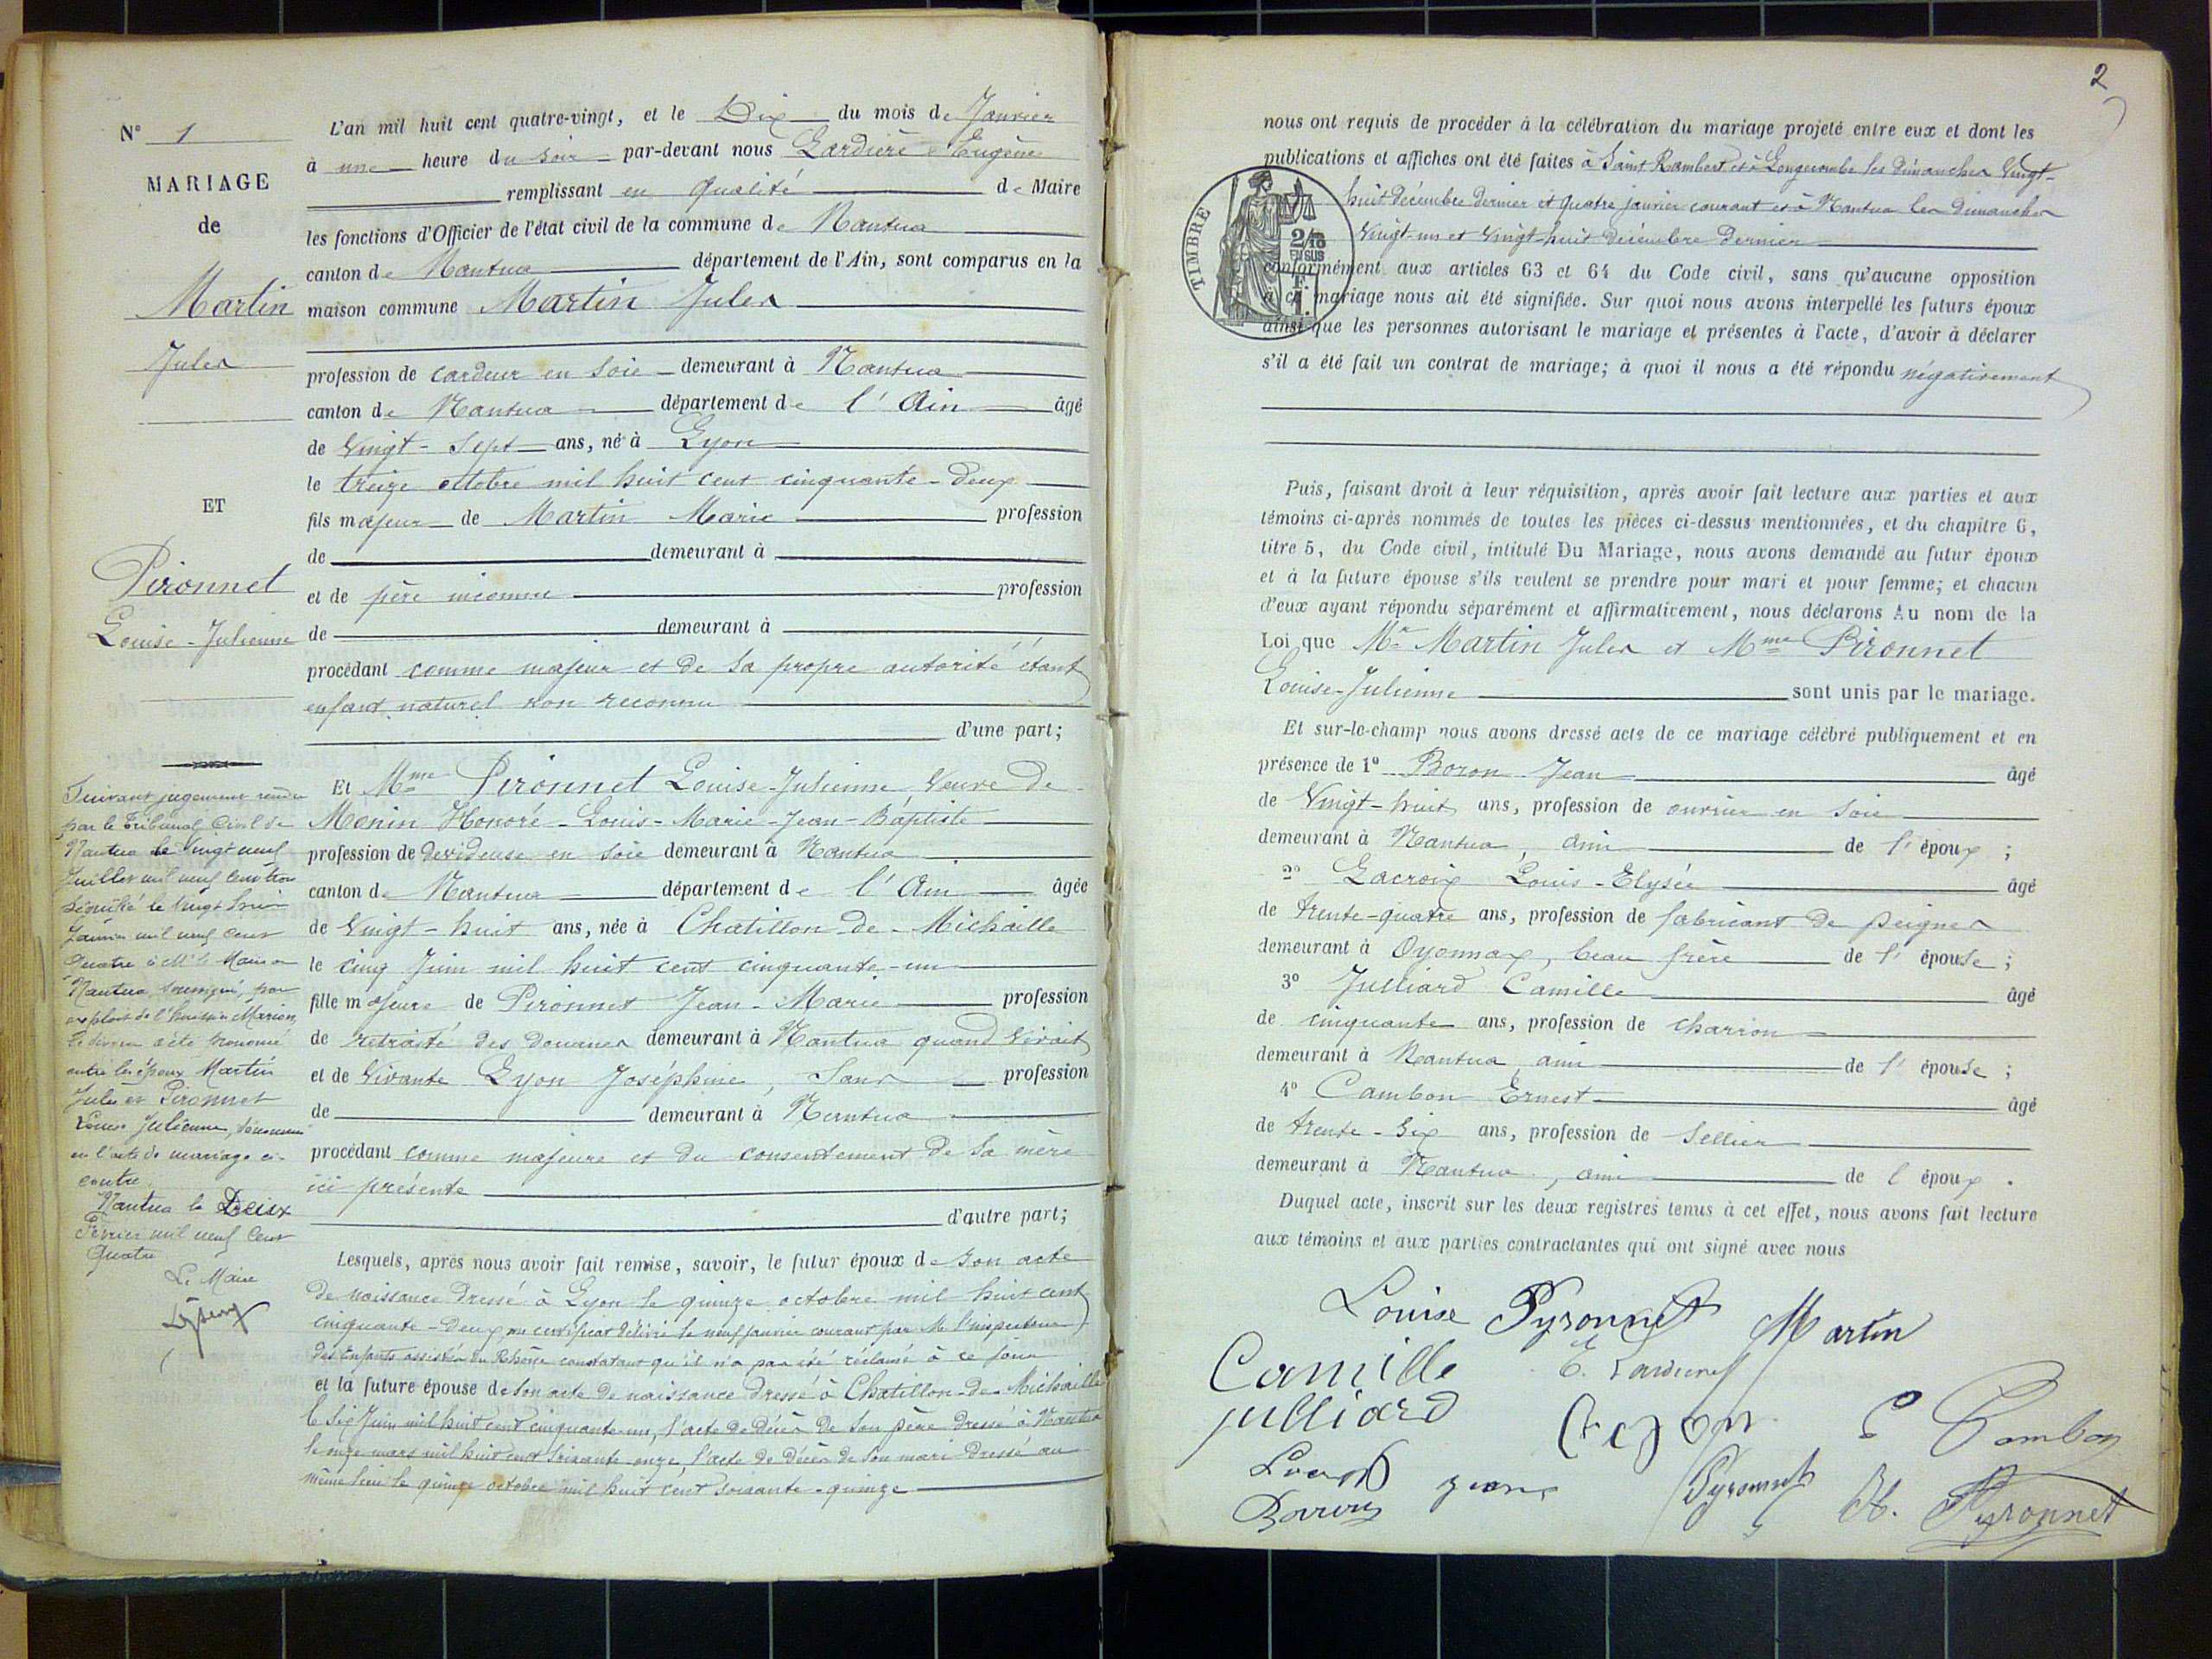 N° 1
MARIAGE
de
Martin
Jules
ET
Pironnet
Louise-Julienne
Suivant jugement rendu
par le Tribunal Civil de
Nantua le vingt neuf
Juillet mil neuf cent trois
signifié le vingt huit
Janvier mil neuf cent
quatre à Mr le Maire de
Nantua, soussigné, par
exploit de l'huissier Marion,
le divorce a été prononcé
entre les époux Martin
Jules et Pironnet
Louise Julienne, dénommés
en l'acte de mariage ci-
contre.
Nantua le Deux
Février mil neuf cent
Quatre
Le Maire
L'an mil huit cent quatre-vingt, et le Dix du mois de Janvier
à une heure du soir par-devant nous Lardière Eugène
remplissant en qualité de Maire
les fonctions d'Officier de l'état civil de la commune de Nantua
canton de Nantua département de l'Ain, sont comparus en la
maison commune Martin Jules
profession de cardeur en soie demeurant à Nantua
canton de Nantua département de l'Ain âgé
de vingt-sept ans, né à Lyon
le treize octobre mil huit cent cinquante-deux
fils majeur de Martin Marie profession
de demeurant à
et de père inconnu profession
de demeurant à
procédant comme majeur et de sa propre autorité étant
enfant naturel non reconnu
d'une part;
Et Mme Pironnet Louise-Julienne Veuve de
Monin Honoré-Louis-Marie-Jean-Baptiste
profession de devideuse en soie demeurant à Nantua
canton de Nantua département de l'Ain âgée
de vingt-huit ans, née à Chatillon-de-Michaille
le cinq Juin mil huit cent cinquante-un
fille majeure de Pironnet Jean-Marie profession
de retraité des douanes demeurant à Nantua quand vivait
et de vivante Lyon Joséphine, sans profession
de demeurant à Nantua
procédant comme majeure et du consentement de sa mère
ici présente
d'autre part;
Lesquels, après nous avoir fait remise, savoir, le futur époux de son acte
de naissance dressé à Lyon le quinze octobre mil huit cent
cinquante-deux, un certificat délivré le neuf janvier courant par M. l'inspecteur
des Enfants assistés du Rhône constatant qu'il n'a pas été réclamé à ce jour
et la future épouse de son acte de naissance dressé à Chatillon-de-Michaille
le six Juin mil huit cent cinquante-un, l'acte de décès de son père dressé à Nantua
le onze mars mil huit cent soixante onze, l'acte de décès de son mari dressé au
même lieu le quinze octobre mil huit cent soixante-quinze
2
nous ont requis de procéder à la célébration du mariage projeté entre eux et dont les
publications et affiches ont été faites à Saint Rambert et à Longecombe les dimanches vingt-
huit décembre dernier et quatre janvier courant et à Nantua les dimanches
vingt-un et vingt-huit décembre dernier
TIMBRE
2/10
EN SUS
conformément aux articles 63 et 64 du Code civil, sans qu'aucune opposition
à ce mariage nous ait été signifiée. Sur quoi nous avons interpellé les futurs époux
ainsi que les personnes autorisant le mariage et présentes à l'acte, d'avoir à déclarer
s'il a été fait un contrat de mariage; à quoi il nous a été répondu négativement
Puis, faisant droit à leur réquisition, après avoir fait lecture aux parties et aux
témoins ci-après nommés de toutes les pièces ci-dessus mentionnées, et du chapitre 6,
titre 5, du Code civil, intitulé Du Mariage, nous avons demandé au futur époux
et à la future épouse s'ils veulent se prendre pour mari et pour femme; et chacun
d'eux ayant répondu séparément et affirmativement, nous déclarons Au nom de la
Loi que Mr Martin Jules et Mme Pironnet
Louise-Julienne sont unis par le mariage.
Et sur-le-champ nous avons dressé acte de ce mariage célébré publiquement et en
présence de 1° Boron Jean âgé
de Vingt-huit ans, profession de ouvrier en soie
demeurant à Nantua, ami de l'époux;
2° Lacroix Louis-Elysée âgé
de trente-quatre ans, profession de fabricant de peignes
demeurant à Oyonnax, beau frère de l'épouse;
3° Julliard Camille âgé
de cinquante ans, profession de charron
demeurant à Nantua, ami de l'épouse;
4° Cambon Ernest âgé
de trente-six ans, profession de sellier
demeurant à Nantua, ami de l'époux.
Duquel acte, inscrit sur les deux registres tenus à cet effet, nous avons fait lecture
aux témoins et aux parties contractantes qui ont signé avec nous
Louise Pyronnet Martin
Camille E. Lardiere
julliard
E Cambon
Pyronnet
Pyronnet